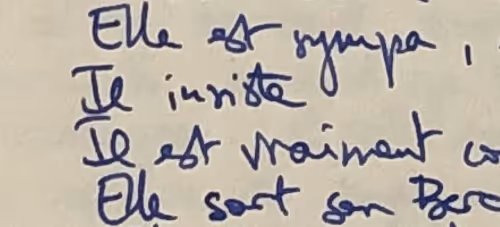 Elle est sympa,
Il insiste
Il est vraiment
Elle sort son